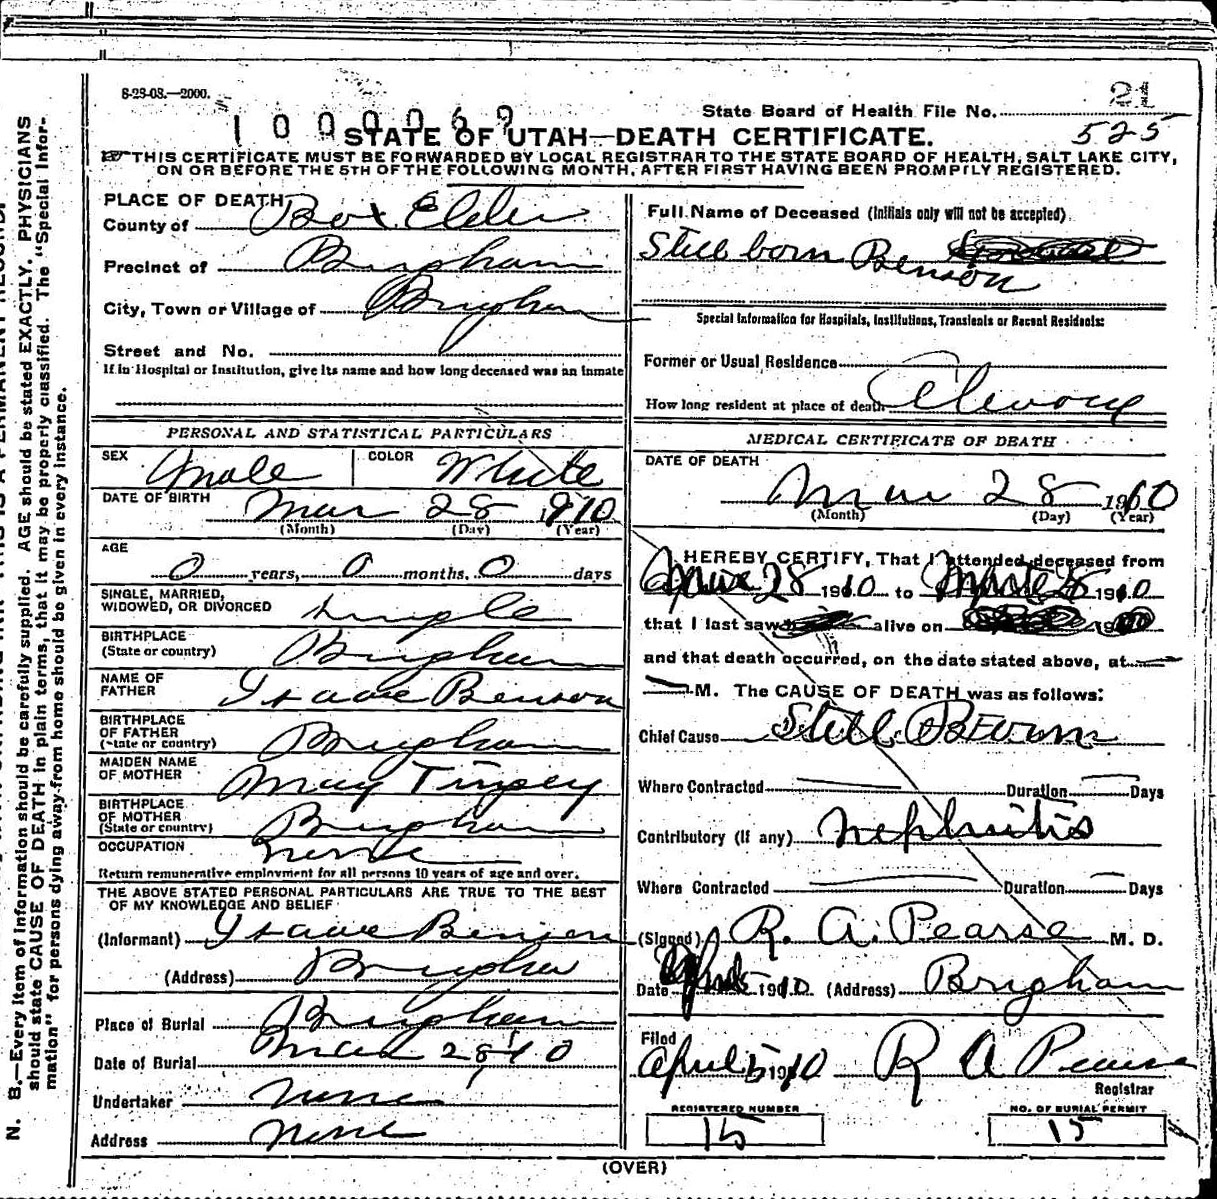 8-28-08.—2000.
State Board of Health File No. 21
1000069
525
STATE OF UTAH—DEATH CERTIFICATE.
THIS CERTIFICATE MUST BE FORWARDED BY LOCAL REGISTRAR TO THE STATE BOARD OF HEALTH, SALT LAKE CITY,
ON OR BEFORE THE 5TH OF THE FOLLOWING MONTH, AFTER FIRST HAVING BEEN PROMPTLY REGISTERED.
PLACE OF DEATH
County of Box Elder
Precinct of Brigham
City, Town or Village of Brigham
Street and No.
If in Hospital or Institution, give its name and how long deceased was an inmate
PERSONAL AND STATISTICAL PARTICULARS
SEX Male COLOR White
DATE OF BIRTH Mar 28 1910
(Month) (Day) (Year)
AGE
0 years, 0 months, 0 days
SINGLE, MARRIED,
WIDOWED, OR DIVORCED single
BIRTHPLACE
(State or country) Brigham
NAME OF
FATHER Isaac Benson
BIRTHPLACE
OF FATHER
(State or country) Brigham
MAIDEN NAME
OF MOTHER May Tingey
BIRTHPLACE
OF MOTHER
(State or country) Brigham
OCCUPATION none
Return remunerative employment for all persons 10 years of age and over.
THE ABOVE STATED PERSONAL PARTICULARS ARE TRUE TO THE BEST
OF MY KNOWLEDGE AND BELIEF
(Informant) Isaac Benson
(Address) Brigham
Place of Burial Brigham
Date of Burial Mar 28 10
Undertaker none
Address none
Full Name of Deceased (Initials only will not be accepted)
Still born Benson
Special Information for Hospitals, Institutions, Transients or Recent Residents:
Former or Usual Residence
How long resident at place of death
MEDICAL CERTIFICATE OF DEATH
DATE OF DEATH
Mar 28 1910
(Month) (Day) (Year)
I HEREBY CERTIFY, That I attended deceased from
28 1910 to 28 1910
that I last saw alive on
and that death occurred, on the date stated above, at
M. The CAUSE OF DEATH was as follows:
Chief Cause Still Born
Where Contracted Duration Days
Contributory (if any) Nephritis
Where Contracted Duration Days
(Signed) R. A. Pearse M. D.
Date 5 1910 (Address) Brigham
Filed
April 5 1910 R A Pearse
Registrar
REGISTERED NUMBER
15
NO. OF BURIAL PERMIT
15
(OVER)
N. B.—Every item of information should be carefully supplied. AGE should be stated EXACTLY. PHYSICIANS
should state CAUSE OF DEATH in plain terms, that it may be properly classified. The "Special Infor-
mation" for persons dying away from home should be given in every instance.